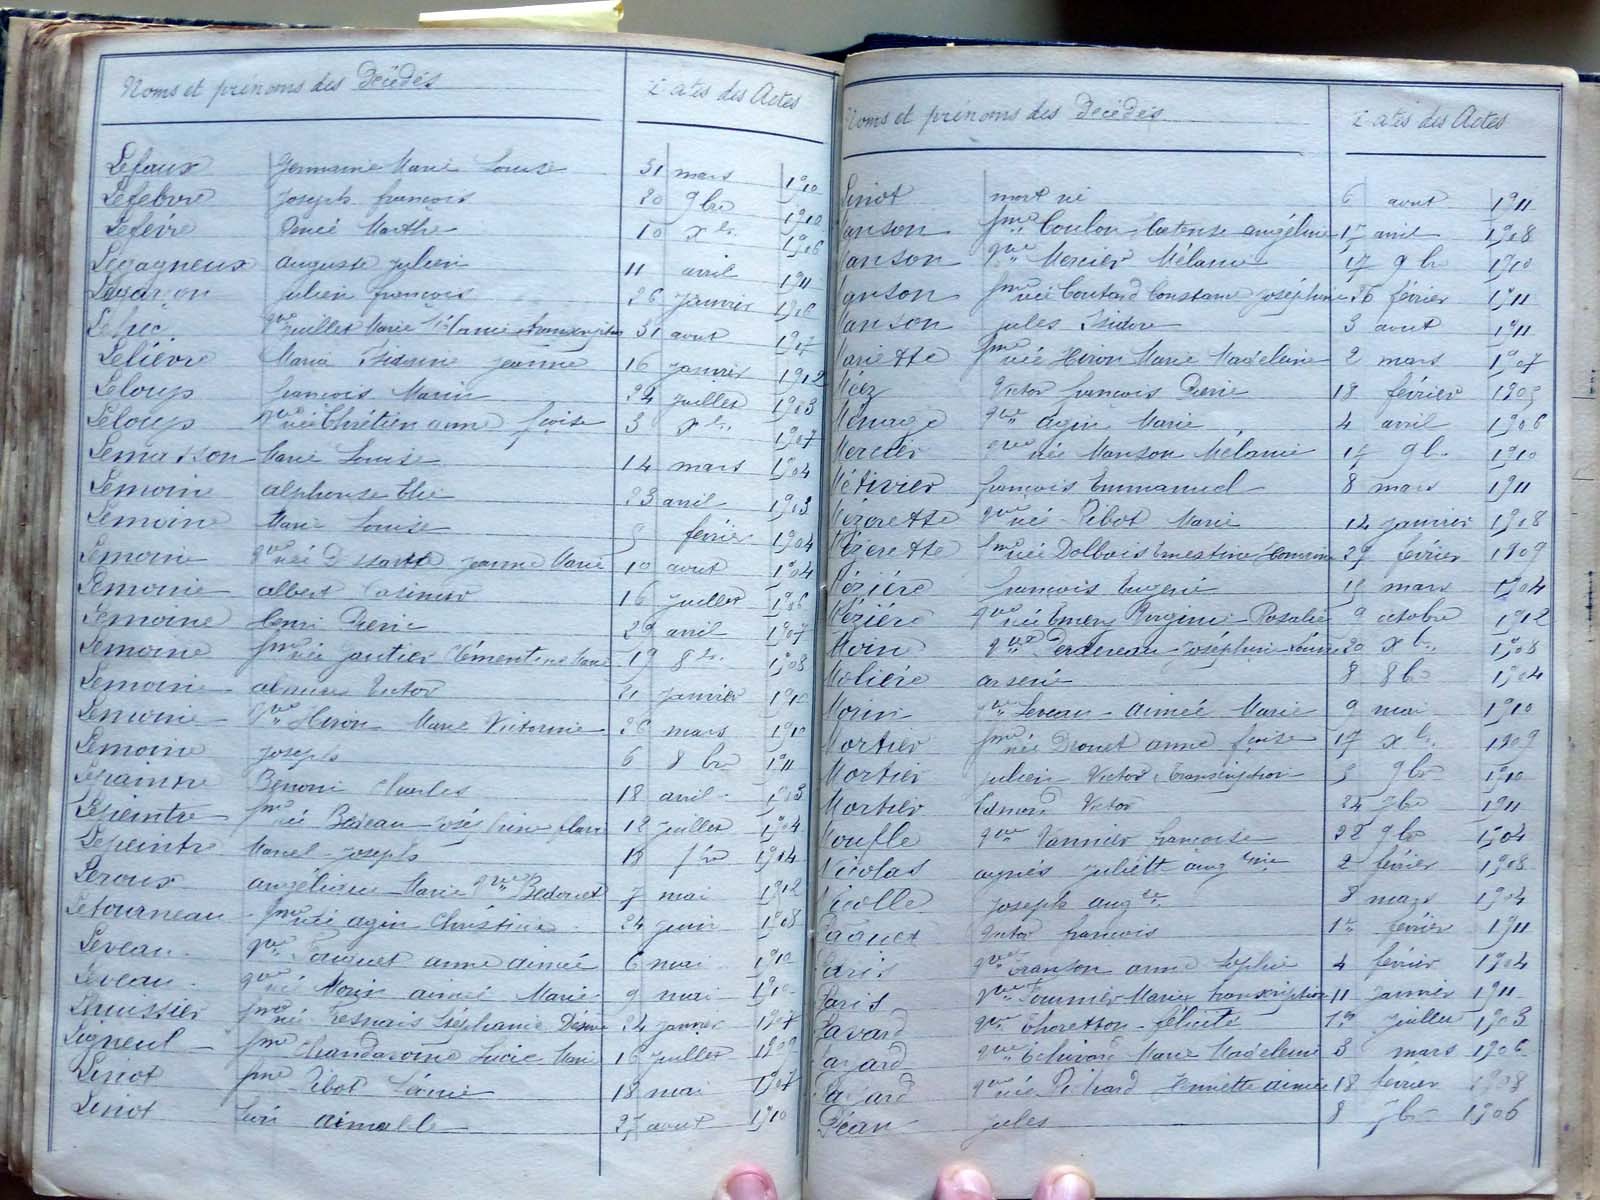 Noms et prénoms des Décédés Dates des Actes
Lefaux Germaine Marie Louise 31 mars 1910
Lefebvre Joseph françois 20 9bre 1910
Lefévre Marthe 10 xbre 1906
Legagneux auguste julien 11 avril 1911
Julien françois 26 janvier 1910
Leluc Marie 31 aout
Leliévre Maria Isidorine jeanne 16 janvier 1912
Leloup françois Marin 24 juillet 1903
Leloup vve née Chrétien anne fçoise 3 xbre 1907
Lemasson Marie Louise 14 mars 1904
Lemoine alphonse Elie 23 avril 1903
Lemoine Marie Louise février 1904
Lemoine vve née jeanne Marie 10 aout 1904
Lemoine albert Casimir 16 juillet 1906
Lemoine Henri Pierre 29 avril 1907
Lemoine fme née Gautier Clémentine Marie 19 8bre 1908
Lemoine Victor 21 janvier 1910
Lemoine vve Hiron Marie Victorine 26 mars 1910
Lemoine joseph 6 8bre 1911
Lepaintre Benoni Charles 18 avril 1903
Lepeintre fme née Bedeau 12 juillet 1904
Lepeintre Marcel joseph 18 1904
Leroux angélique Marie vve Bedouet 7 mai 1912
Letourneau fme née agin Christine 24 juin 1908
Leveau vve Fouquet anne aimée 6 mai 1910
Leveau vve née Morin aimée Marie 9 mai 1910
Lhuissier fme née Tesnais Stéphanie Désirée 24 janvier 1907
Ligneul fme Chandavoine Lucie Marie 16 juillet 1909
Liniot fme Ribot 18 mai 1907
Liniot aimable 27 aout 1910
Noms et prénoms des Décédés Dates des Actes
Liniot mort né 6 aout 1911
Manson fme Coulon angéline 17 avril 1908
Manson vve Mercier Mélanie 17 9bre 1910
Manson fme née Coutard Constance Joséphine 26 février 1911
Manson jules Isidore 3 aout 1911
Mariette fme née Hiron Marie Madeleine 2 mars 1907
Méez Victor françois Pierre 18 février 1905
Ménage vve agin Marie 4 avril 1906
Mercier vve née Manson Mélanie 17 9bre 1910
Métivier françois Emmanuel 8 mars 1911
Mézerette vve née Ribot Marie 14 janvier 1908
Mézerette fme née Dolbois Ernestine 27 février 1909
Méziére françois Eugené 18 mars 1904
Méziére vve née Emery Virginie Rosalie 9 octobre 1912
Moin vve Perdereau Joséphine 20 xbre 1908
Moliére arsené 8 8bre 1904
Morin vve Leveau aimée Marie 9 mai 1910
Mortier fme née Drouet anne fçoise 17 xbre 1909
Mortier julien Victor transcription 3 9bre 1910
Mortier Edmond Victor 24 7bre 1911
Moufle vve Vannier françoise 28 9bre 1904
Nicolas agnés Juliette augtine 2 février 1908
Nicolle joseph augte 8 mars 1904
Paquet Victor françois 1er février 1911
Paris vve Transon anne Sophie 4 février 1904
Paris vve Fournier Marie transcription 11 janvier 1911
Pavard vve Thoretton félicité juillet 1903
vve Marie Madeleine 3 mars 1906
vve née Pichard Henriette aimée 18 février 1908
Péan jules 8 7bre 1906